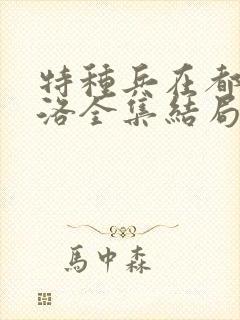 特種兵在都
洛全集結局
馬中森